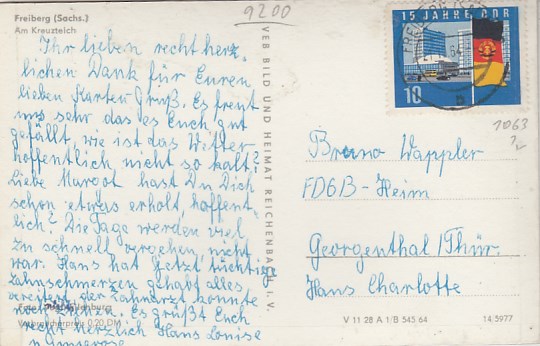 Freiberg (Sachs.)
Am Kreuzteich
9200
Ihr lieben recht herz
lichen Dank für Euren
lieben Karten Gruß. Es freut
uns sehr das es Euch gut
gefällt, wie ist das Wetter
hoffentlich nicht so kalt?
Liebe Margot hast Du Dich
schon etwas erholt, hoffent-
lich? Die Tage werden viel
zu schnell vergehen, nicht
war. Hans hat jetzt tüchtig
Zahnschmerzen gehabt alles
vereitert der Zahnarzt konnte
noch ziehen. Es grüßt Euch
recht herzlich Hans Louise
u. Annerose
Verbraucherpreis 0,20 DM
VEB BILD UND HEIMAT REICHENBACH i. V.
15 JAHRE DDR
10
1063
Bruno Wappler
FDGB-Heim
Georgenthal/Thür.
Haus Charlotte
V 11 28 A 1/B 545 64
14 5977